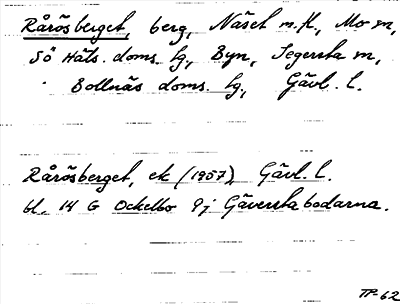 Råråsberget, berg, Näset m.fl., Mo sn,
Sö Häls. doms. lg., Byn, Segersta sn,
Bollnäs doms. lg., Gävl. l.
Råråsberget, ek (1957), Gävl. l.
bl. 14 G Ockelbo 9j Gäverstabodarna.
TP-62